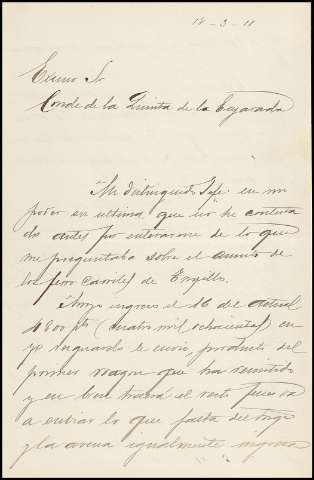 18-3-11
Excmo Sr
Conde de la Quinta de la Enjarada
Mi distinguido Jefe: en mi
poder su ultima que no he contesta
do antes por enterarme de lo que
me preguntaba sobre el asunto de
los ferro carriles de Trujillo.
ingreso el 16 del actual
4800 pts (cuatro mil ochocientas) en
yo resguardo le envio, producto del
primer vagon que ha remitido
y en breve traerá el resto pues va
a entrar lo que falta del trigo
y la avena igualmente ingresa